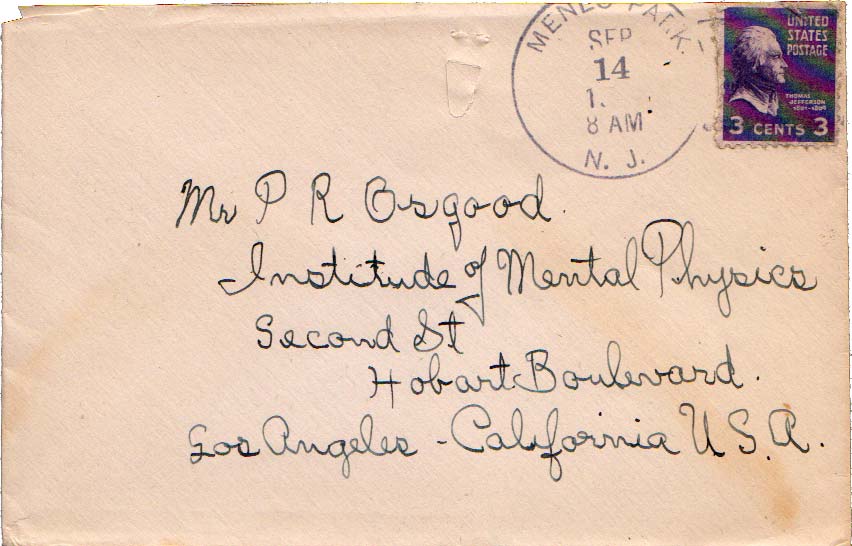 MENLO PARK.
SEP
14
8 AM
N. J.
UNITED
STATES
POSTAGE
THOMAS
JEFFERSON
1801-1809
3 CENTS 3
Mr P R Osgood.
Institude of Mental Physics
Second St
Hobart Boulevard.
Los Angeles - California U.S.A.